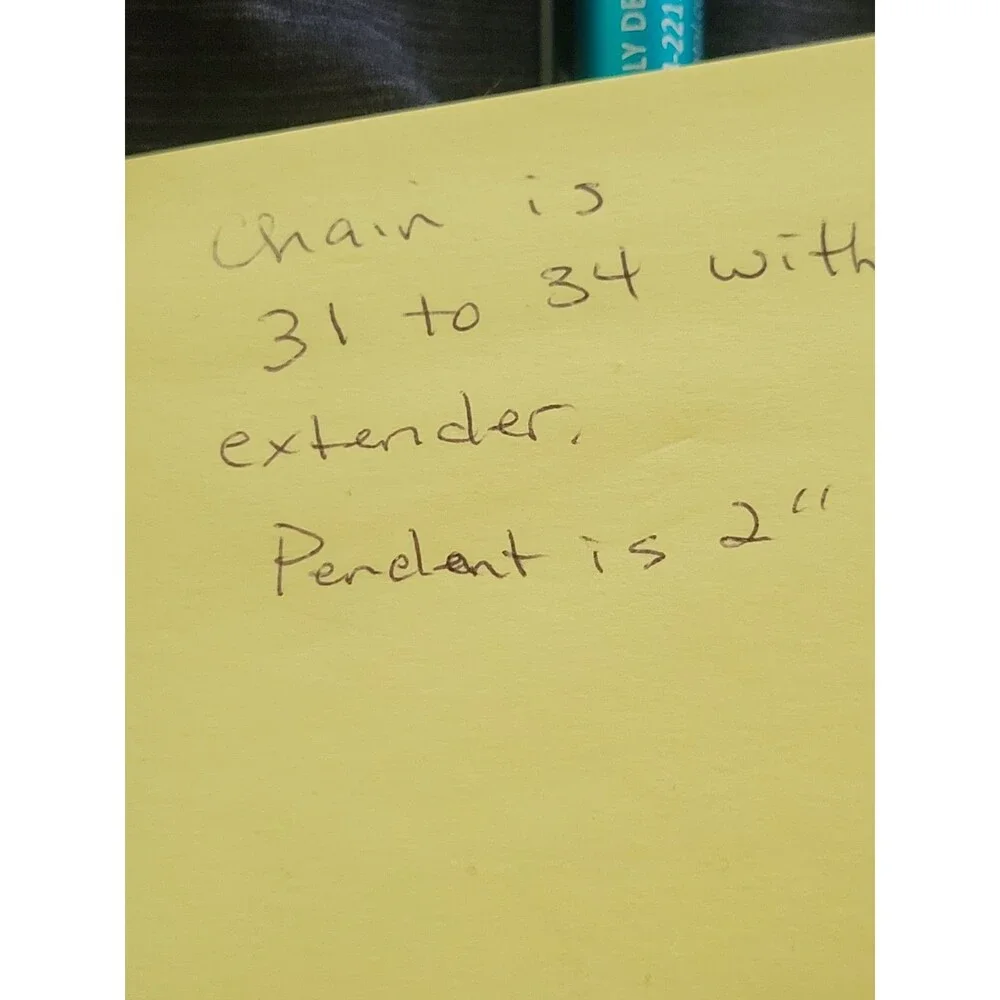 LY DE
-221
Chain is
31 to 34 with
extender.
Pendant is 2"